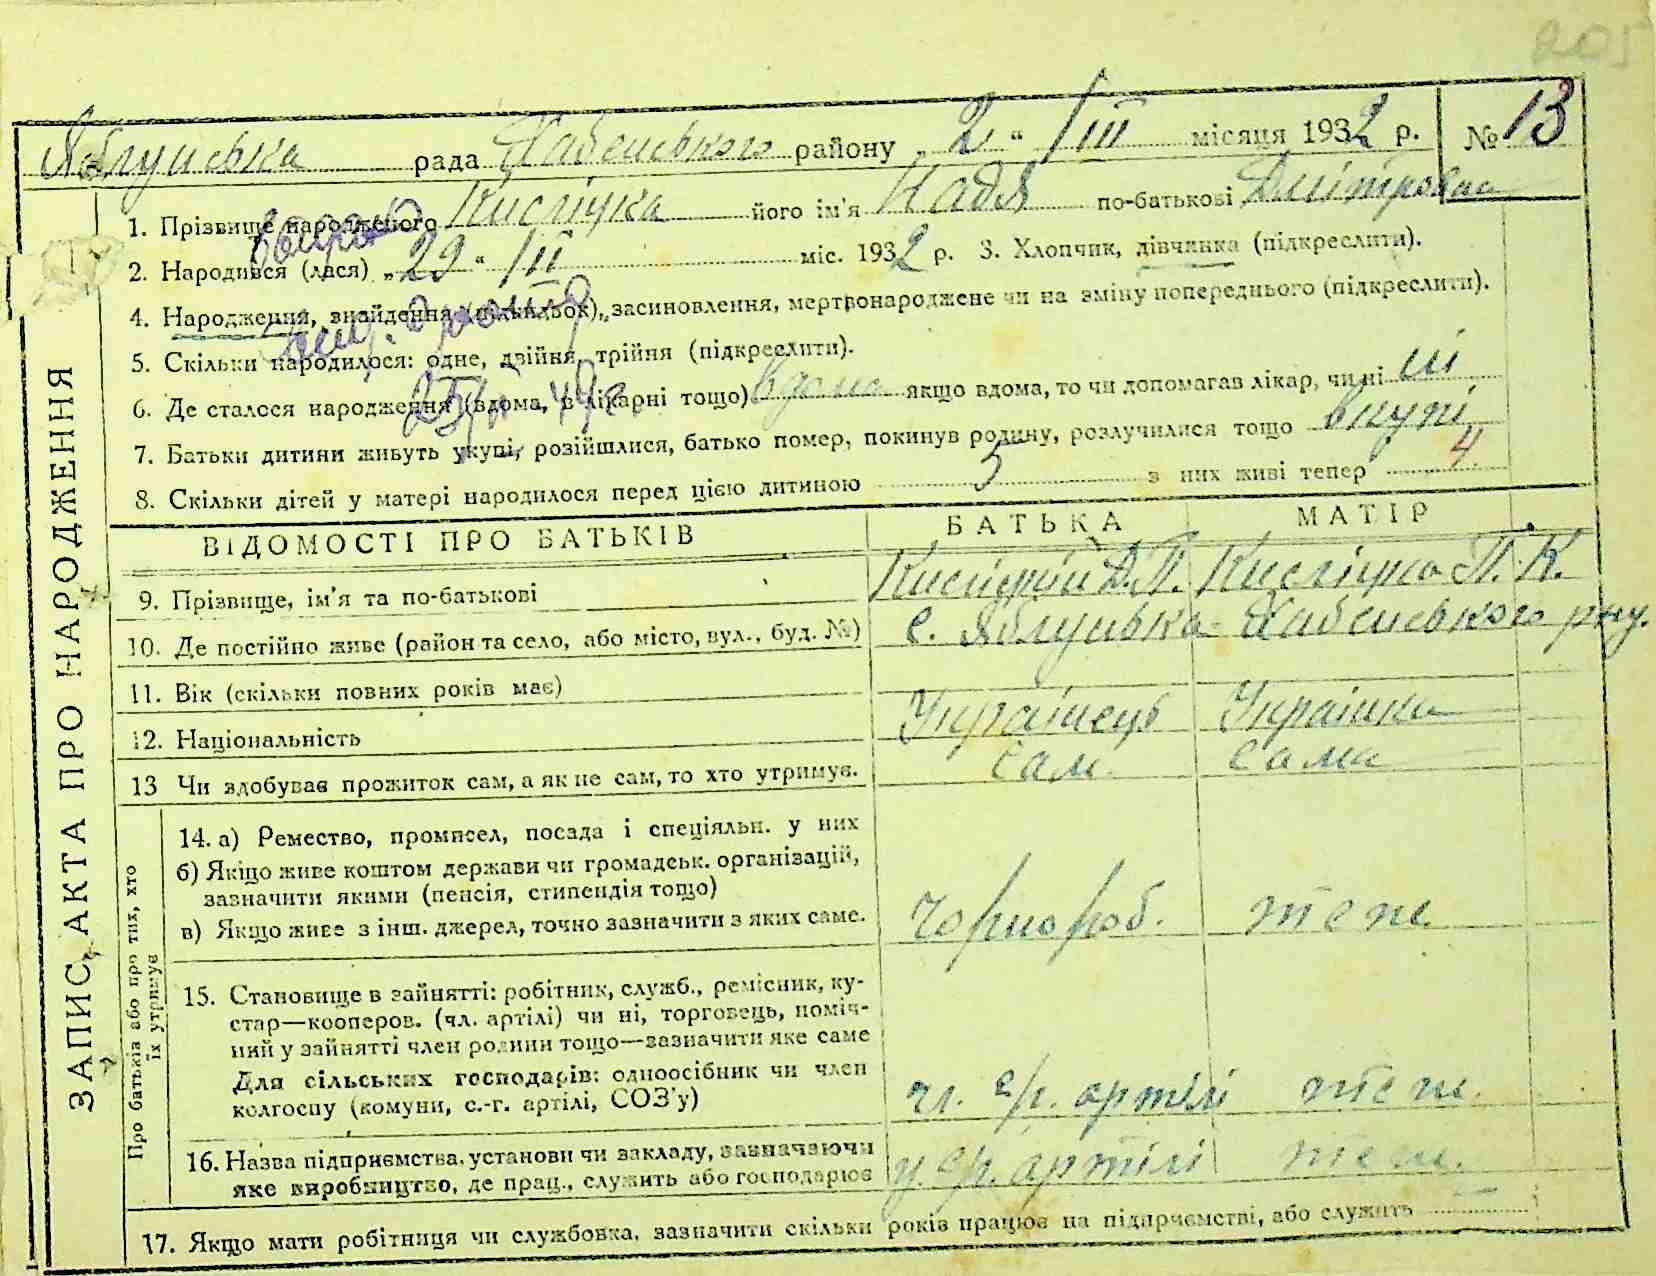 205
Яблунівська рада Хабенського району „2“ III місяця 1932 р. № 13
ЗАПИС АКТА ПРО НАРОДЖЕННЯ
1. Прізвище народженого його ім'я Надя по-батькові Дмітровна
2. Народився (лася) „29“ III міс. 1932 р. 3. Хлопчик, дівчинка (підкреслити).
4. Народження, знайдення (підкидьок), засиновлення, мертвонароджене чи на зміну попереднього (підкреслити).
5. Скільки народилося: одне, двійня, трійня (підкреслити).
6. Де сталося народження (вдома, в лікарні тощо) вдома якщо вдома, то чи допомагав лікар, чи ні ні
7. Батьки дитини живуть укупі, розійшлися, батько помер, покинув родину, розлучилися тощо вкупі
8. Скільки дітей у матері народилося перед цією дитиною 5 з них живі тепер 4
ВІДОМОСТІ ПРО БАТЬКІВ БАТЬКА МАТІР
9. Прізвище, ім'я та по-батькові Д. П. П. К.
10. Де постійно живе (район та село, або місто, вул., буд. №) с. Яблунівка Хабенського р-ну.
11. Вік (скільки повних років має)
12. Національність Українець Українка
13 Чи здобував прожиток сам, а як не сам, то хто утримує. Сам. Сама
Про батьків або про тих, хто їх утримує
14. а) Ремество, промисел, посада і спеціяльн. у них
б) Якщо живе коштом держави чи громадськ. організацій,
зазначити якими (пенсія, стипендія тощо)
в) Якщо живе з інш. джерел, точно зазначити з яких саме. Чорнороб. теж.
15. Становище в зайнятті: робітник, служб., ремісник, ку-
стар—кооперов. (чл. артілі) чи ні, торговець, поміч-
ний у зайнятті член родини тощо—зазначити яке саме
Для сільських господарів: одноосібник чи член
колгоспу (комуни, с.-г. артілі, СОЗ'у) чл. с/г. артілі теж.
16. Назва підприємства, установи чи закладу, зазначаючи
яке виробництво, де прац., служить або господарює у с/г. артілі теж.
17. Якщо мати робітниця чи службовка, зазначити скільки років працює на підприємстві, або служить